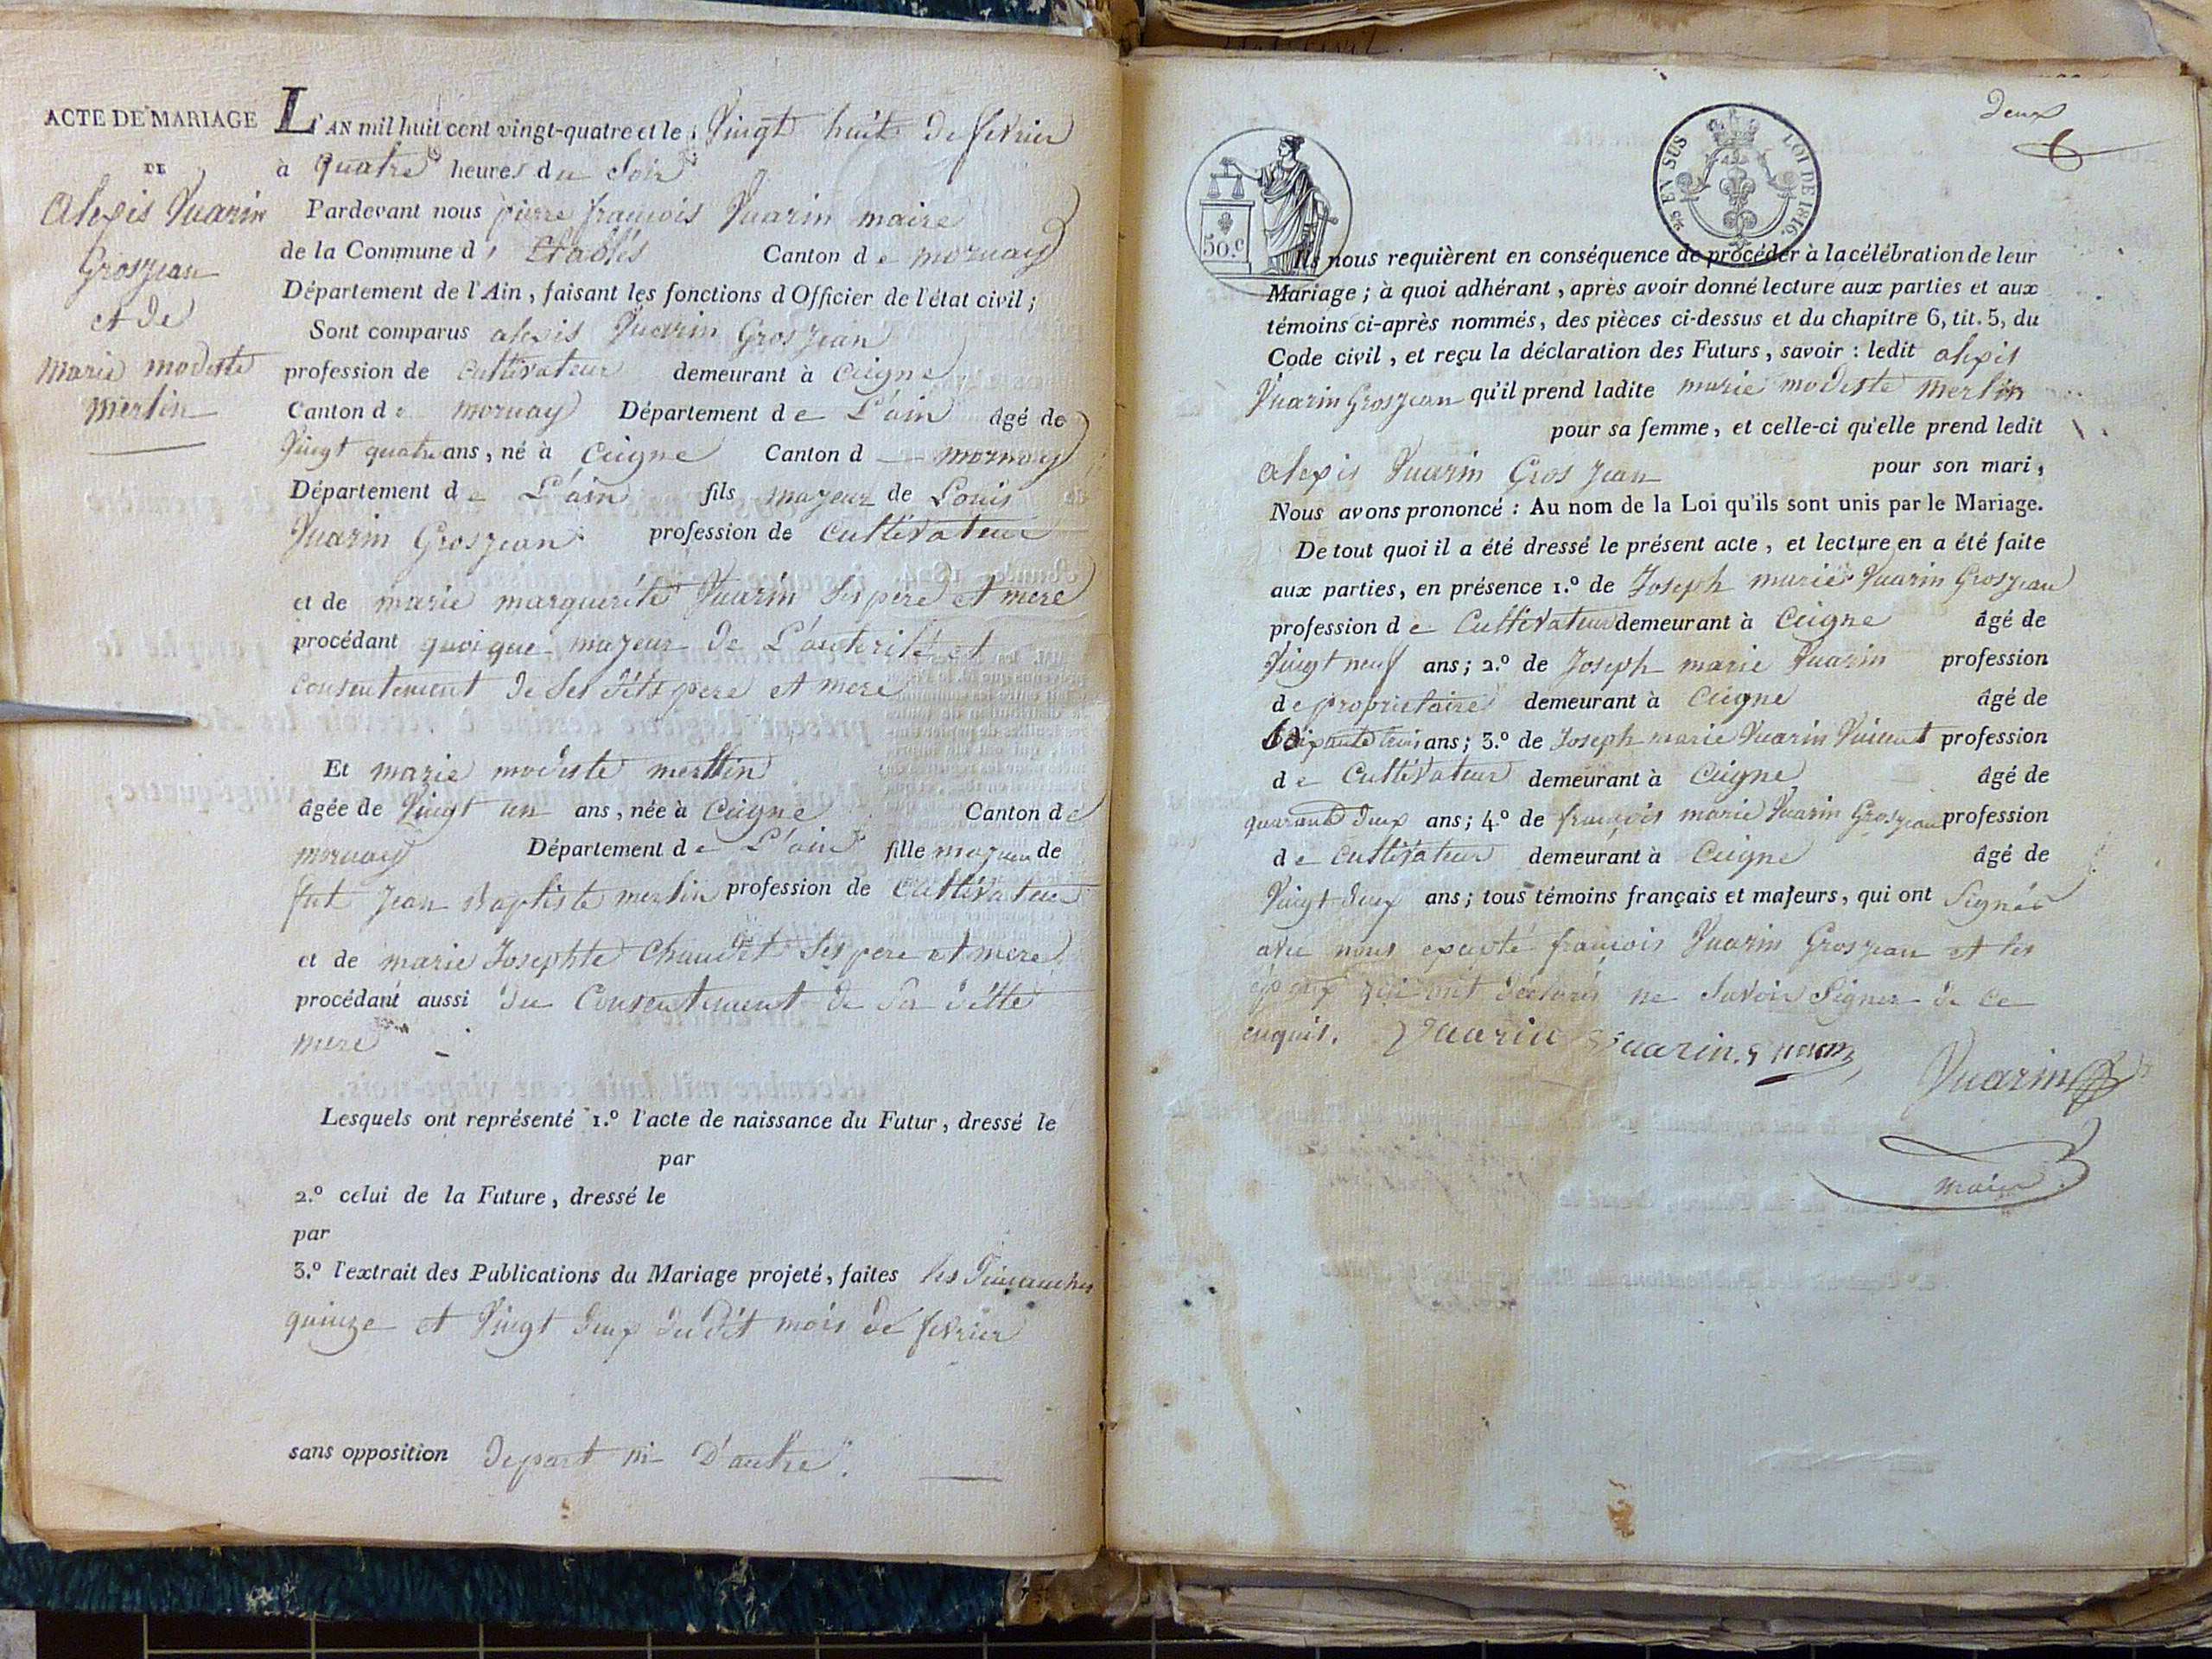 ACTE DE MARIAGE
DE
Alexis Vuarin
Grosjean
et de
marie modeste
merlin
L'AN mil huit cent vingt-quatre et le Vingt huit de fevrier
à quatre heures du Soir
Pardevant nous pierre françois Vuarin maire
de la Commune d' Etables Canton de mornay
Département de l'Ain, faisant les fonctions d'Officier de l'état civil;
Sont comparus alexis Vuarin Grosjean
profession de Cultivateur demeurant à Ceigne
Canton de mornay Département de L'ain âgé de
Vingt quatre ans, né à Ceigne Canton d mornay
Département de L'ain fils majeur de Louis
Vuarin Grosjean profession de Cultivateur
et de marie marguerite Vuarin Ses pere et mere
procédant quoique majeur de L'autorité et
Consentement de Ses dits pere et mere
Et marie modeste merlin
âgée de Vingt un ans, née à Ceigne Canton de
mornay Département de L'ain fille majeure de
fut Jean Baptiste merlin profession de Cultivateur
et de marie Josephte Chaudet Ses pere et mere
procédant aussi du Consentement de Sa ditte
mere
Lesquels ont représenté 1.º l'acte de naissance du Futur, dressé le
par
2.º celui de la Future, dressé le
par
3.º l'extrait des Publications du Mariage projeté, faites les Dimanches
quinze et Vingt deux dudit mois de fevrier
sans opposition depart ni D'autre.
deux
6
50.c
25 EN SUS LOI DE 1816.
Ils nous requièrent en conséquence de procéder à la célébration de leur
Mariage; à quoi adhérant, après avoir donné lecture aux parties et aux
témoins ci-après nommés, des pièces ci-dessus et du chapitre 6, tit. 5, du
Code civil, et reçu la déclaration des Futurs, savoir: ledit alexis
Vuarin Grosjean qu'il prend ladite marie modeste merlin
pour sa femme, et celle-ci qu'elle prend ledit
alexis Vuarin Gros Jean pour son mari,
Nous avons prononcé: Au nom de la Loi qu'ils sont unis par le Mariage.
De tout quoi il a été dressé le présent acte, et lecture en a été faite
aux parties, en présence 1.º de Joseph marie Vuarin Grosjean
profession de Cultivateur demeurant à Ceigne âgé de
Vingt neuf ans; 2.º de Joseph marie Vuarin profession
de proprietaire demeurant à Ceigne âgé de
Soixante trois ans; 3.º de Joseph marie Vuarin Vincent profession
de Cultivateur demeurant à Ceigne âgé de
quarante deux ans; 4.º de françois marie Vuarin Grosjean profession
de Cultivateur demeurant à Ceigne âgé de
Vingt deux ans; tous témoins français et majeurs, qui ont Signés
avec nous excepté françois Vuarin Grosjean et les
époux qui ont déclarés ne Savoir Signer de ce
enquis. Vuarin Vuarin
Vuarin
maire